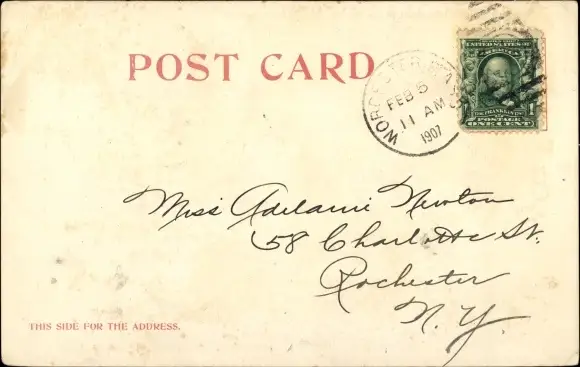 POST CARD
WORCESTER, MASS.
FEB 5
11 AM
1907
UNITED STATES OF
FRANKLIN
1 1
POSTAGE
ONE CENT
Miss Adelaine Newton
58 Charlotte St.
Rochester
N. Y.
THIS SIDE FOR THE ADDRESS.